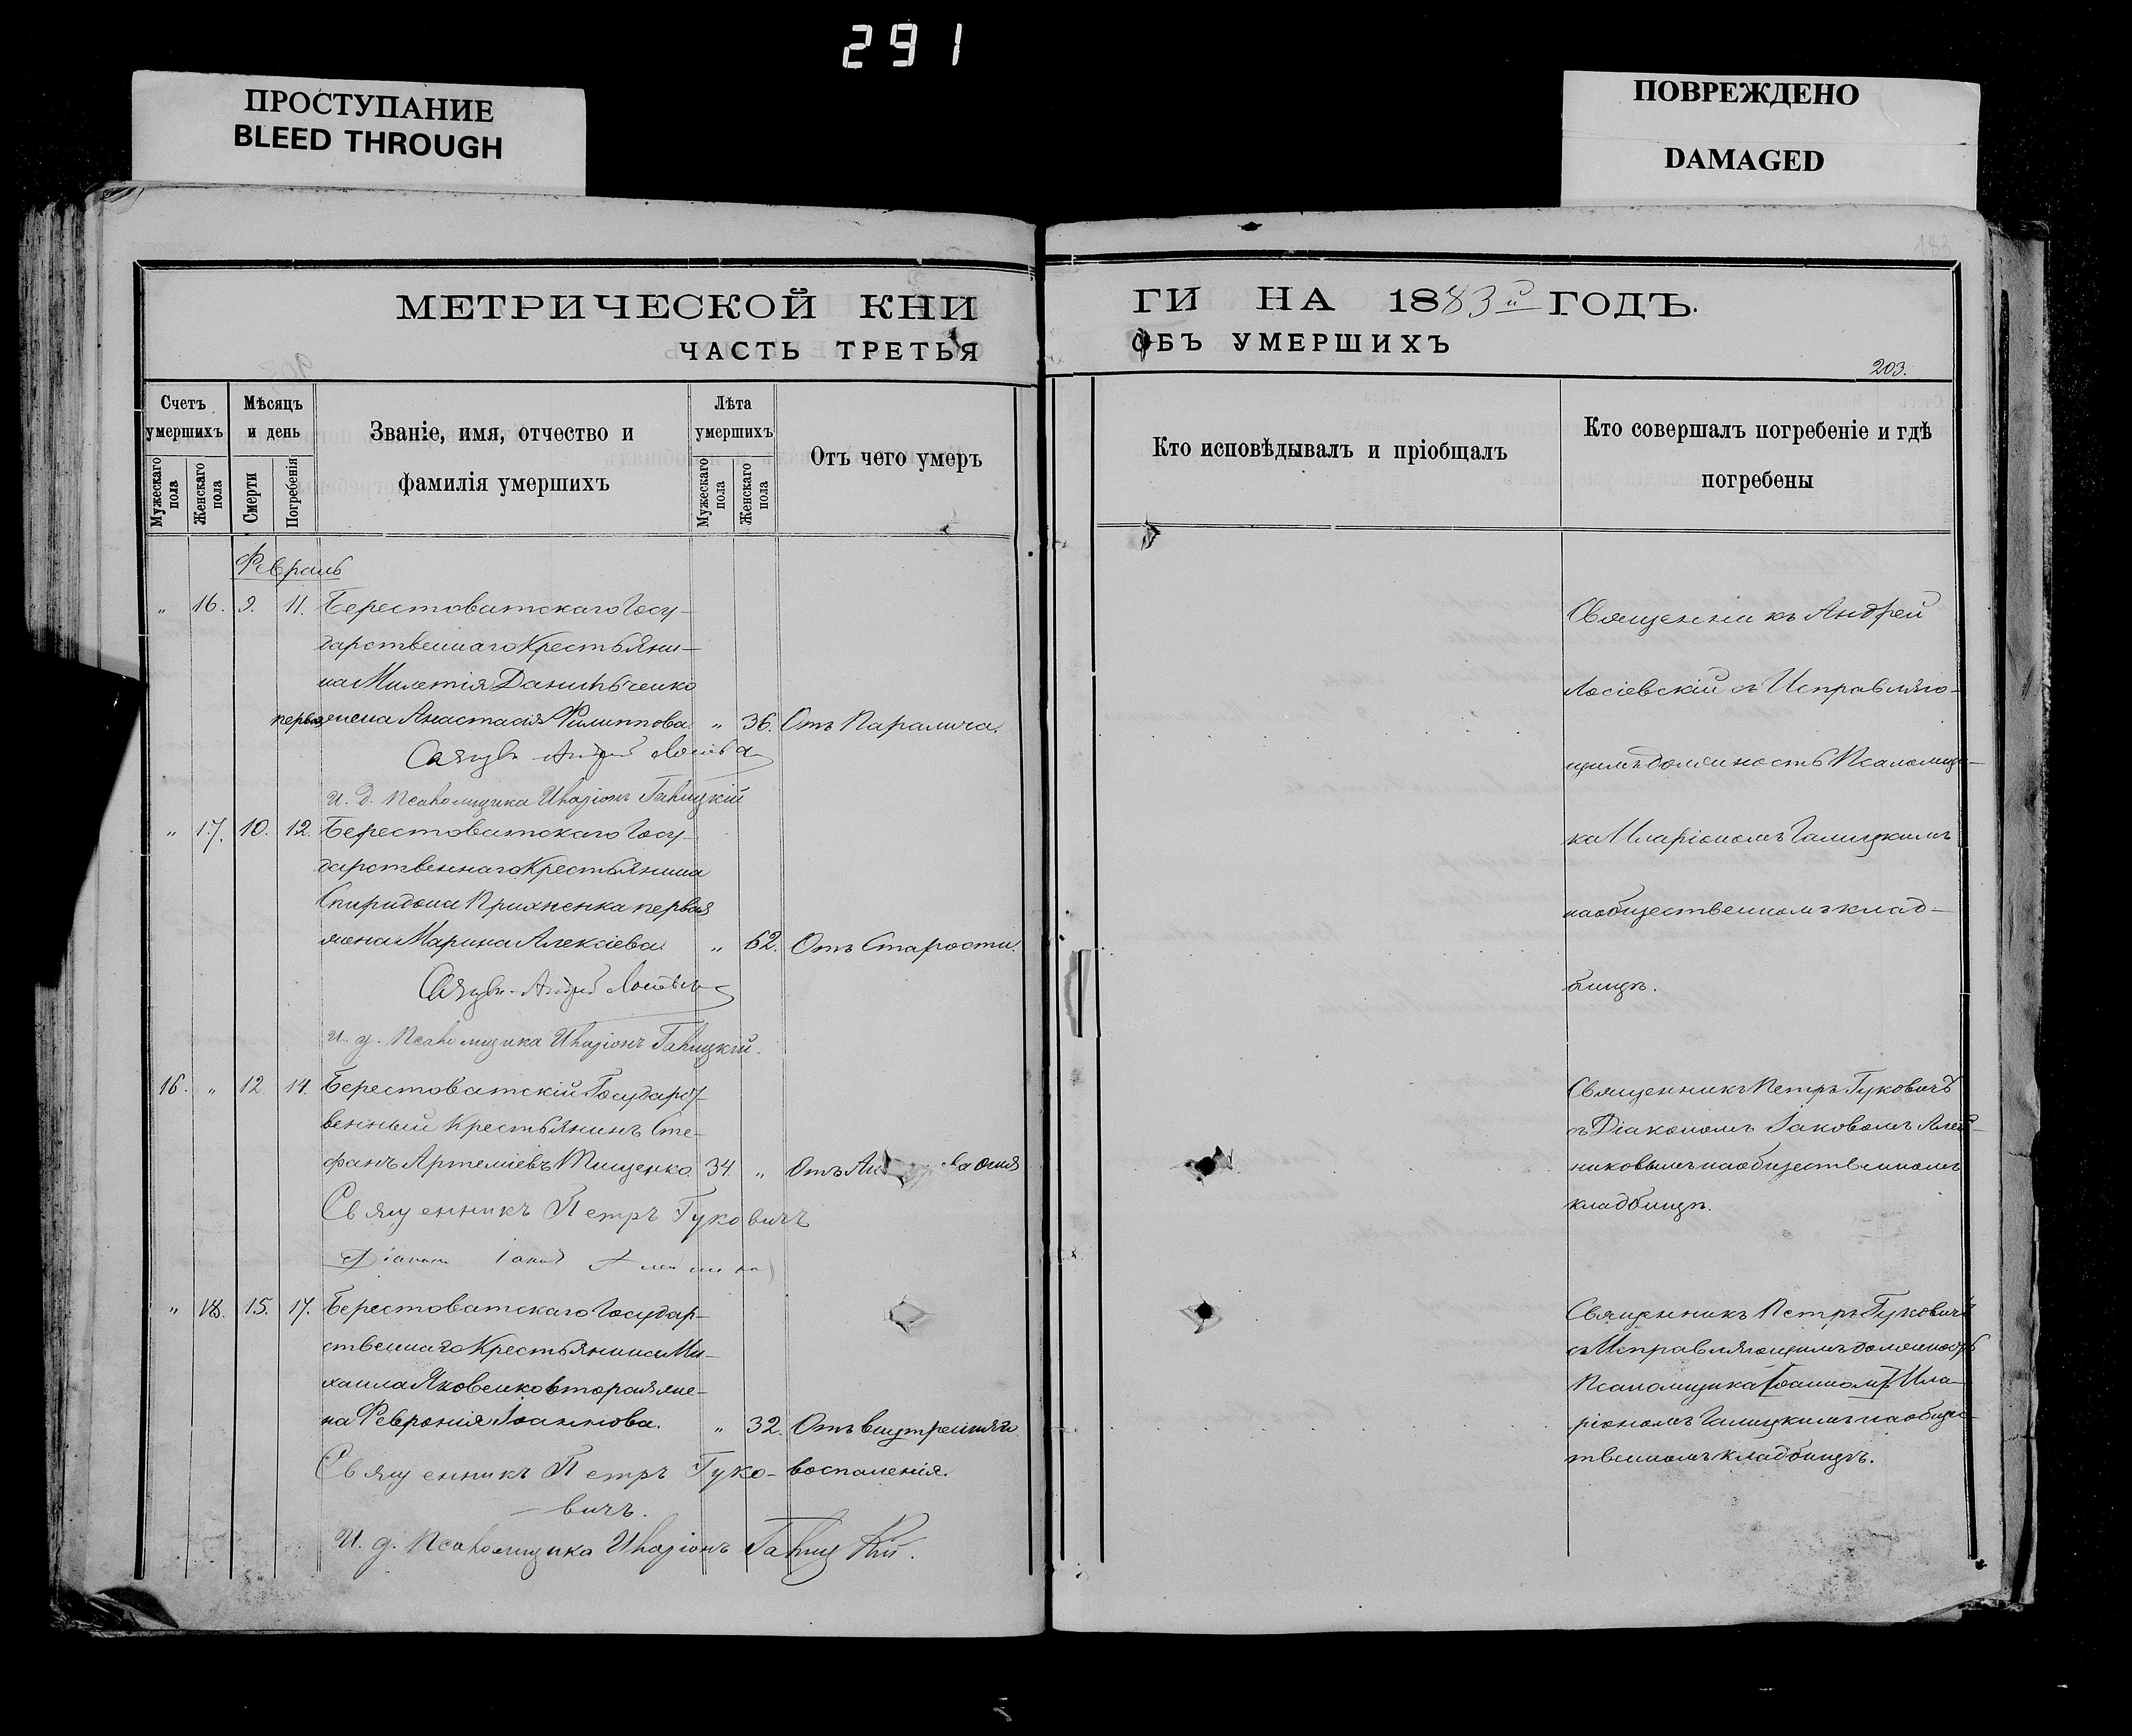 291
ПРОСТУПАНИЕ
BLEED THROUGH
ПОВРЕЖДЕНО
DAMAGED
МЕТРИЧЕСКОЙ КНИ
ЧАСТЬ ТРЕТЬЯ
ГИ НА 1883й ГОДЪ.
ОБЪ УМЕРШИХЪ
203.
Счетъ умершихъ
Мужескаго пола
Женскаго пола
Мѣсяцъ и день
Смерти
Погребенія
Званіе, имя, отчество и
фамилія умершихъ
Лѣта умершихъ
Мужескаго пола
Женскаго пола
Отъ чего умеръ
Кто исповѣдывалъ и пріобщалъ
Кто совершалъ погребеніе и гдѣ
погребены
Февраль
„ 16. 9. 11. Берестоватскаго Госу-
дарственнаго Крестьяни-
на Милетія Данильченко
первая жена Анастасія Филиппова. „ 36. Отъ Паралича.
Священ. Андрей
И. д. Псаломщика Иларіонъ Галицкій
Священникъ Андрей
Лосіевскій съ Исправляю-
щимъ должность Псаломщи-
ка Иларіономъ Галицкимъ
на общественномъ клад-
бищѣ.
„ 17. 10. 12. Берестоватскаго Госу-
дарственнаго Крестьянина
Спиридона Прихненка первая
жена Марина Алексіева. „ 62. Отъ Старости.
Священ. Андрей
И. д. Псаломщика Иларіонъ Галицкій.
16. „ 12. 14. Берестоватскій Государст-
венный Крестьянинъ Сте-
фанъ Артеміевъ Тищенко. 34. „ Отъ огня
Священникъ Петръ Гуковичъ
Діаконъ Іаковъ
Священникъ Петръ Гуковичъ
съ Діакономъ Іаковомъ Алей-
никовымъ на общественномъ
кладбищѣ.
„ 18. 15. 17. Берестоватскаго Государ-
ственнаго Крестьянина Ми-
хаила Яковенко вторая же-
на Февронія Іоаннова. „ 32. Отъ внутренняго
воспаленія.
Священникъ Петръ Гуко-
вичъ.
И. д. Псаломщика Иларіонъ Галицкій.
Священникъ Петръ Гуковичъ
съ Исправляющимъ должность
Псаломщика Іоанномъ Ила-
ріономъ Галицкимъ на общес-
твенномъ кладбищѣ.